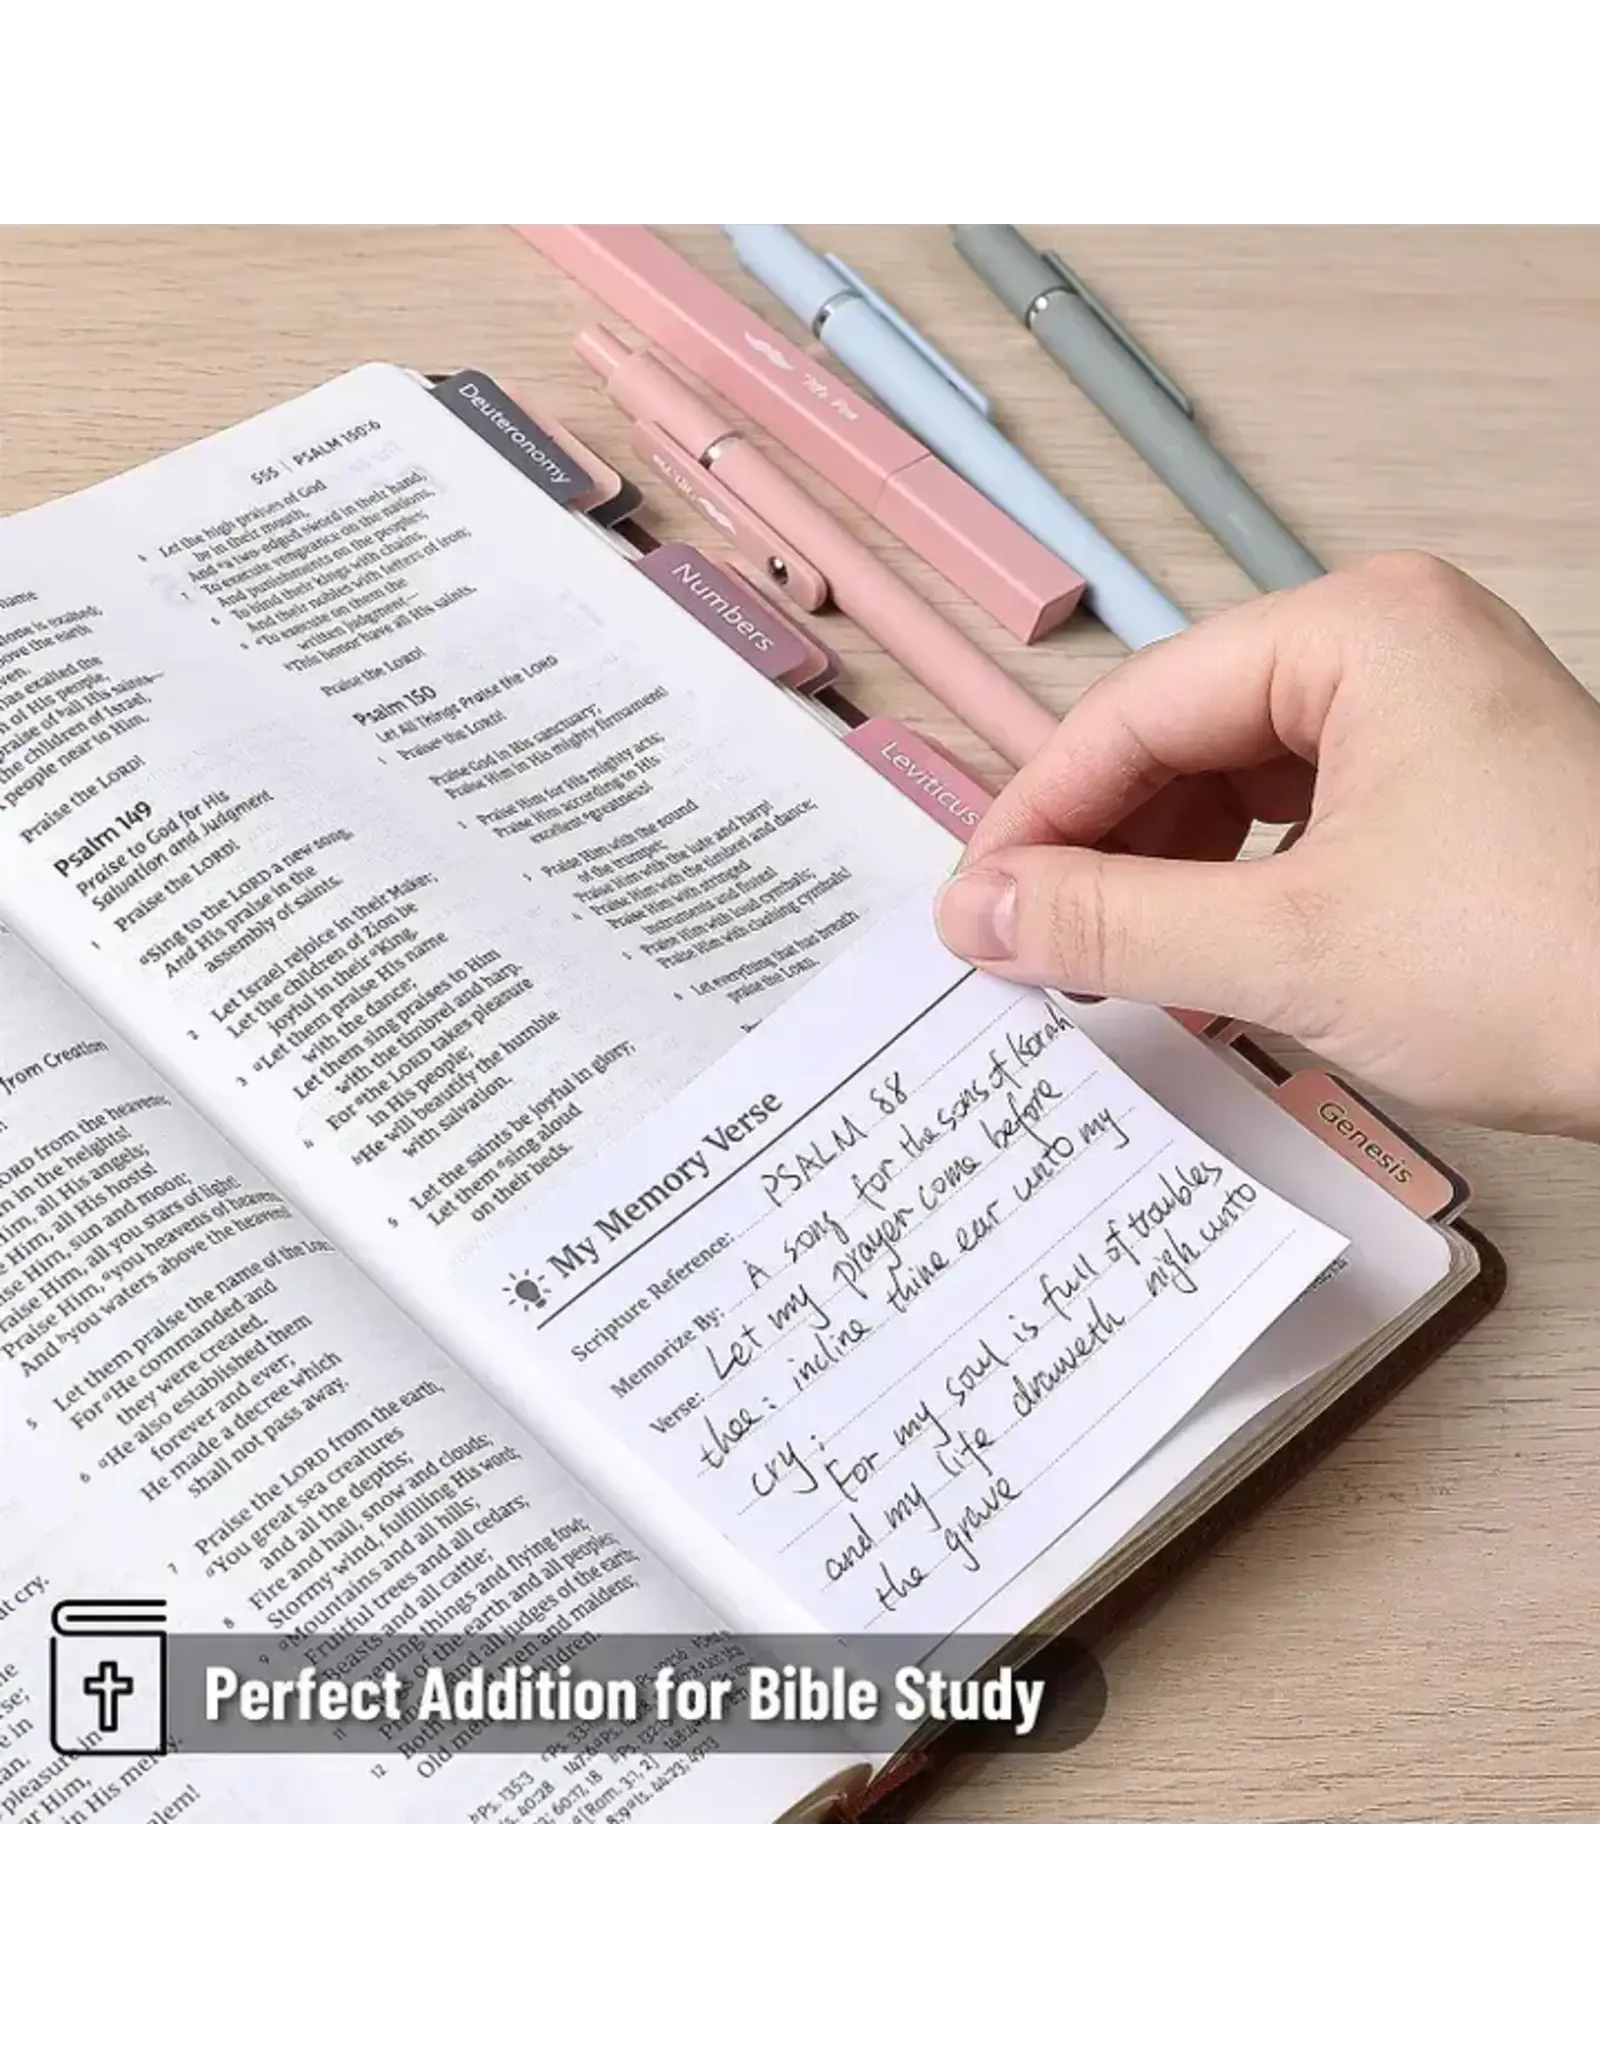 Deuteronomy
Numbers
Leviticus
Genesis
Mr. Pen
555 | PSALM 150:6
Let the high praises of God
be in their mouth,
And a two-edged sword in their hand,
7 To execute vengeance on the nations,
And punishments on the peoples;
8 To bind their kings with chains,
And their nobles with fetters of iron;
9 To execute on them the
written judgment—
This honor have all His saints.
Praise the LORD!
Psalm 150
Let All Things Praise the LORD
1 Praise the LORD!
Praise God in His sanctuary;
Praise Him in His mighty firmament!
Praise Him for His mighty acts;
Praise Him according to His
excellent greatness!
3 Praise Him with the sound
of the trumpet;
Praise Him with the lute and harp!
4 Praise Him with the timbrel and dance;
Praise Him with stringed
instruments and flutes!
5 Praise Him with loud cymbals;
Praise Him with clashing cymbals!
6 Let everything that has breath
praise the LORD.
has exalted the
of His people,
praise of all His saints—
the children of Israel,
people near to Him.
Praise the LORD!
Psalm 149
Praise to God for His
Salvation and Judgment
1 Praise the LORD!
Sing to the LORD a new song,
And His praise in the
assembly of saints.
2 Let Israel rejoice in their Maker;
Let the children of Zion be
joyful in their King.
3 Let them praise His name
with the dance;
Let them sing praises to Him
with the timbrel and harp.
4 For the LORD takes pleasure
in His people;
He will beautify the humble
with salvation.
5 Let the saints be joyful in glory;
Let them sing aloud
on their beds.
from Creation
LORD from the heavens;
in the heights!
Him, all His angels;
Him, all His hosts!
Him, sun and moon;
Praise Him, all you stars of light!
Praise Him, you heavens of heavens,
And you waters above the heavens!
5 Let them praise the name of the
For He commanded and
they were created.
6 He also established them
forever and ever;
He made a decree which
shall not pass away.
7 Praise the LORD from the earth,
You great sea creatures
and all the depths;
8 Fire and hail, snow and clouds;
Stormy wind, fulfilling His word;
9 Mountains and all hills;
Fruitful trees and all cedars;
Beasts and all cattle;
Creeping things and flying fowl;
of the earth and all peoples;
and all judges of the earth;
12 Both men and maidens;
Old men children.
My Memory Verse
Scripture Reference: PSALM 88
Memorize By: A song for the sons of Korah
Verse: Let my prayer come before
thee: incline thine ear unto my
cry;
For my soul is full of troubles
and my life draweth nigh unto
the grave
Perfect Addition for Bible Study